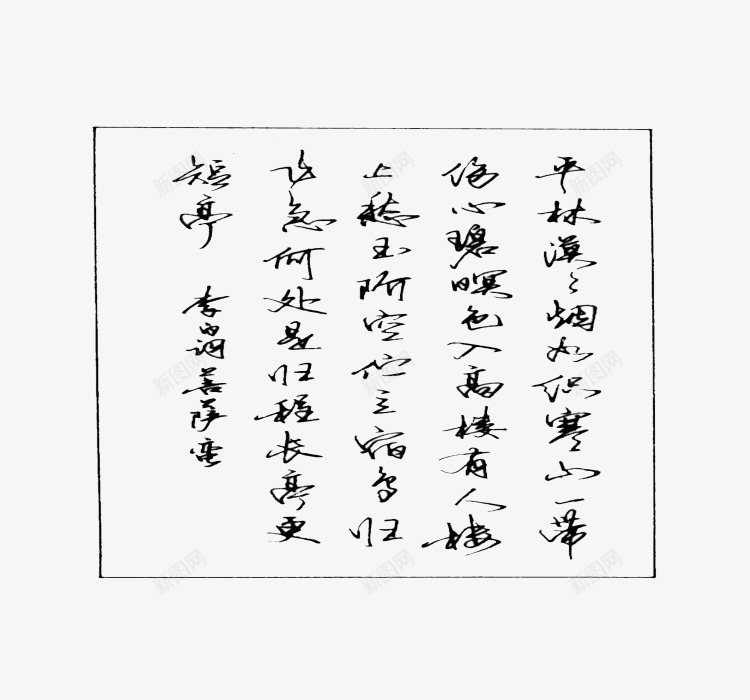 平林漠々烟如织寒山一带
伤心碧暝色入高楼有人楼
上愁玉阶空伫立宿鸟归
飞急何处是归程长亭更
短亭 李白词菩萨蛮
新图网
新图网
新图网
新图网
新图网
新图网
新图网
新图网
新图网